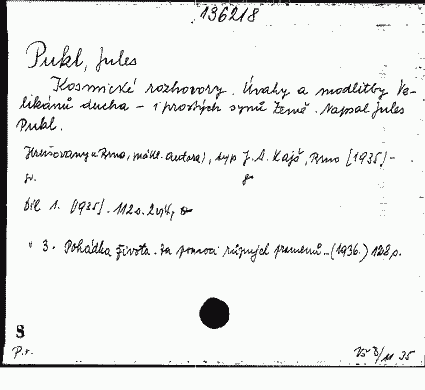 136218
Pukl, Jules
Kosmické rozhovory. Úvahy a modlitby Ve-
likánů ducha – i prostých synů Země. Napsal Jules
Pukl.
Hrušovany u Brna, nákl. autora), typ J. A. Kajš, Brno [1935] –
Díl 1. [1935]. 112 s.
" 3. Pohádka života. Za pomoci různých pramenů.. (1936.) 128 s.
S
P.r.
35